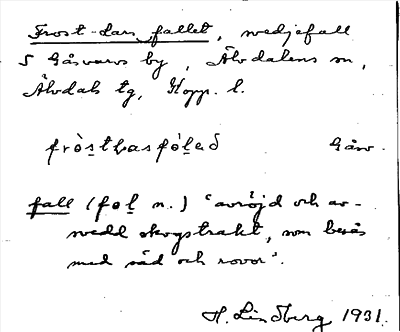 Frost-Lars fallet, svedjefall
S Gåsvarvs by, Älvdalens sn,
Älvdals tg, Kopp. l.
fròstlasfólað Gåsv.
fall (fol n.) 'avröjd och av-
svedd skogstrakt, som besås
med säd och rovor'.
H. Lindberg 1931.